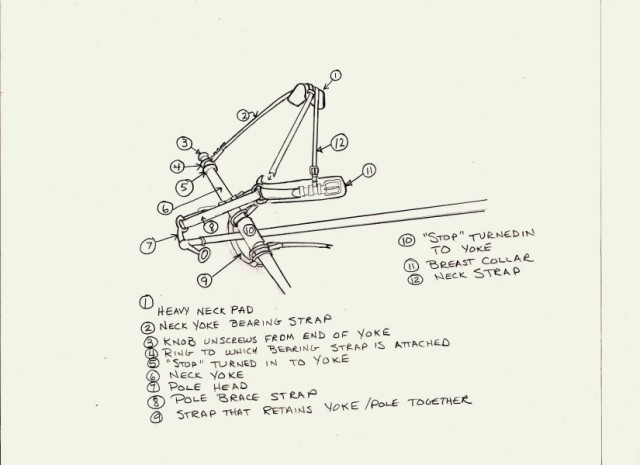 1
2
12
3
4
5
11
6
8
7
10
9
10 "STOP" TURNED IN
TO YOKE
11 BREAST COLLAR
12 NECK STRAP
1 HEAVY NECK PAD
2 NECK YOKE BEARING STRAP
3 KNOB UNSCREWS FROM END OF YOKE
4 RING TO WHICH BEARING STRAP IS ATTACHED
5 "STOP" TURNED IN TO YOKE
6 NECK YOKE
7 POLE HEAD
8 POLE BRACE STRAP
9 STRAP THAT RETAINS YOKE/POLE TOGETHER